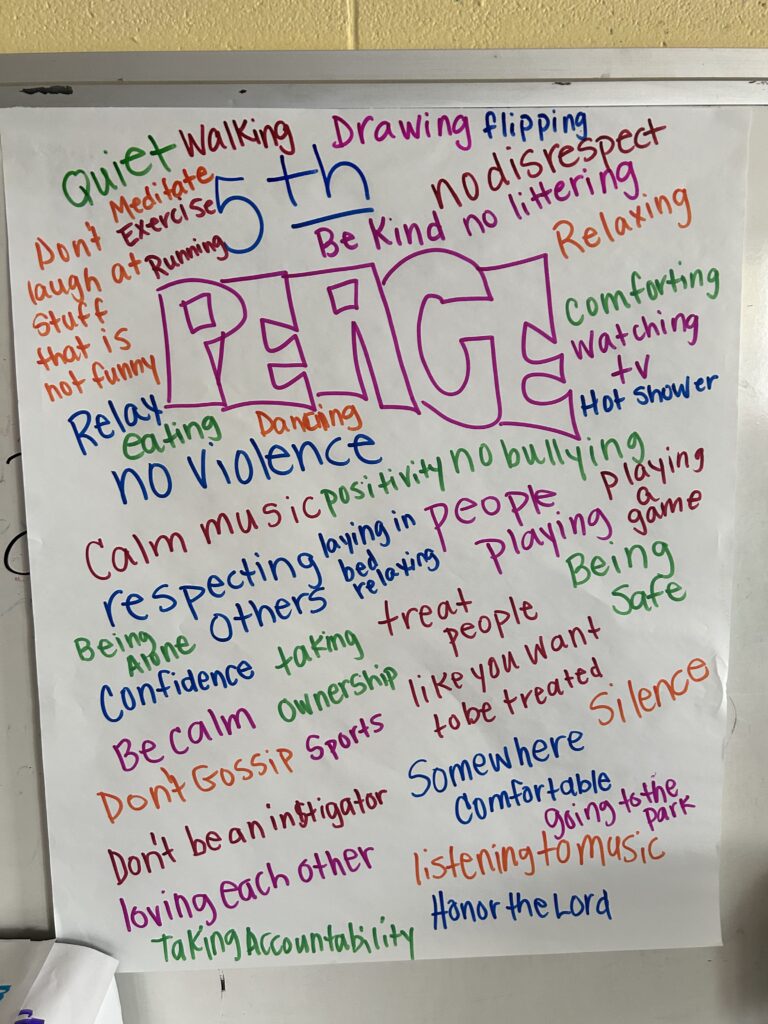 Quiet
Walking
Drawing
flipping
5th
no disrespect
Meditate
Exercise
Running
Be Kind
no littering
Relaxing
Don't
laugh at
stuff
that is
not funny
PEACE
Comforting
Watching
tv
Hot Shower
Relay
eating
Dancing
no violence
positivity
no bullying
Calm music
laying in
bed
relaxing
people
playing
playing
a
game
respecting
others
Being
Safe
Being
Alone
Confidence
taking
ownership
treat
people
like you want
to be treated
Be calm
Sports
Silence
Don't Gossip
Somewhere
Comfortable
going to the
park
Don't be an instigator
listening to music
loving each other
Honor the Lord
Taking Accountability